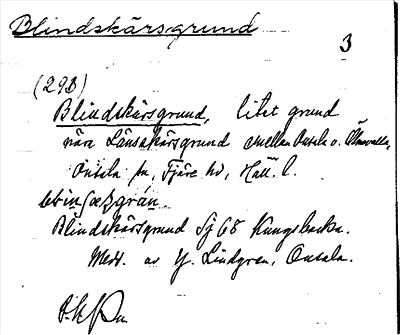 Blindskärsgrund
3
(293)
Blindskärsgrund, litet grund
nära Länsskärsgrund mellan Onsala o. Ölmevalla,
Onsala sn, Fjäre hd, Hall. l.
Blindskärsgrund Sj 68 Kungsbacka.
Medd. av Y. Lindgren, Onsala.